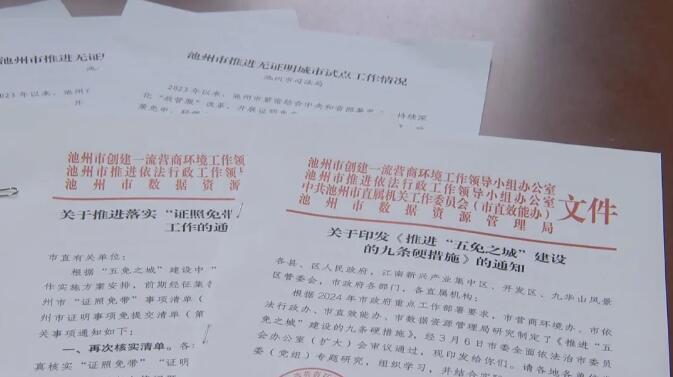 池州市推进无证明
2023年以来，池州
池州市推进无证明城市试点工作情况
池州市司法局
2023年以来，池州市紧密结合中央和省部署
持续深
化"放管服"改革，开展证明
池州市创建一流营商环境工作领
池州市推进依法行政工作领导
池州市数据资源
关于推进落实"证照免带
工作的通
市直有关单位：
根据"五免之城"建设中"
作实施方案安排，前期经征集
州市"证照免带"事项清单（
州市证明事项免提交清单（第
关事项通知如下：
一、再次核实清单。各
真核实"证照免带""证明
池州市创建一流营商环境工作领导小组办公室
池州市推进依法行政工作领导小组办公室
中共池州市直属机关工作委员会（市直效能办）
池州市数据资源管理局
文件
关于印发《推进"五免之城"建设
的九条硬措施》的通知
各县、区人民政府，江南新兴产业集中区、开发区、九华山风景
区管委会，市政府各部门、各直属机构：
根据2024年市政府重点工作部署要求，市营商环境办、市依
法行政办、市直效能办、市数据资源管理局研究制定了《推进"五
免之城"建设的九条硬措施》，经3月6日市委全面依法治市委员
会办公室（扩大）会审议通过，现印发给你们。请各地各单位
委（党组）专题研究，组织学习，并结合实际